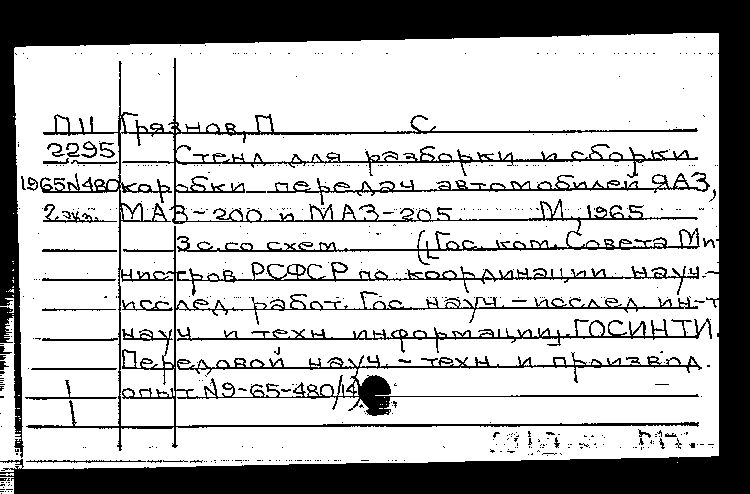 П11 Грязнов, П С
2295 Стенд для разборки и сборки
1965N480 коробки передач автомобилей ЯАЗ,
2 экз. МАЗ-200 и МАЗ-205 М, 1965
3 с. со схем. (Гос. ком. Совета Ми-
нистров РСФСР по координации науч.-
исслед. работ. Гос науч.-исслед ин-т
науч. и техн. информации, ГОСИНТИ.
Передовой науч.-техн. и производ.
опыт. N9-65-480/14)